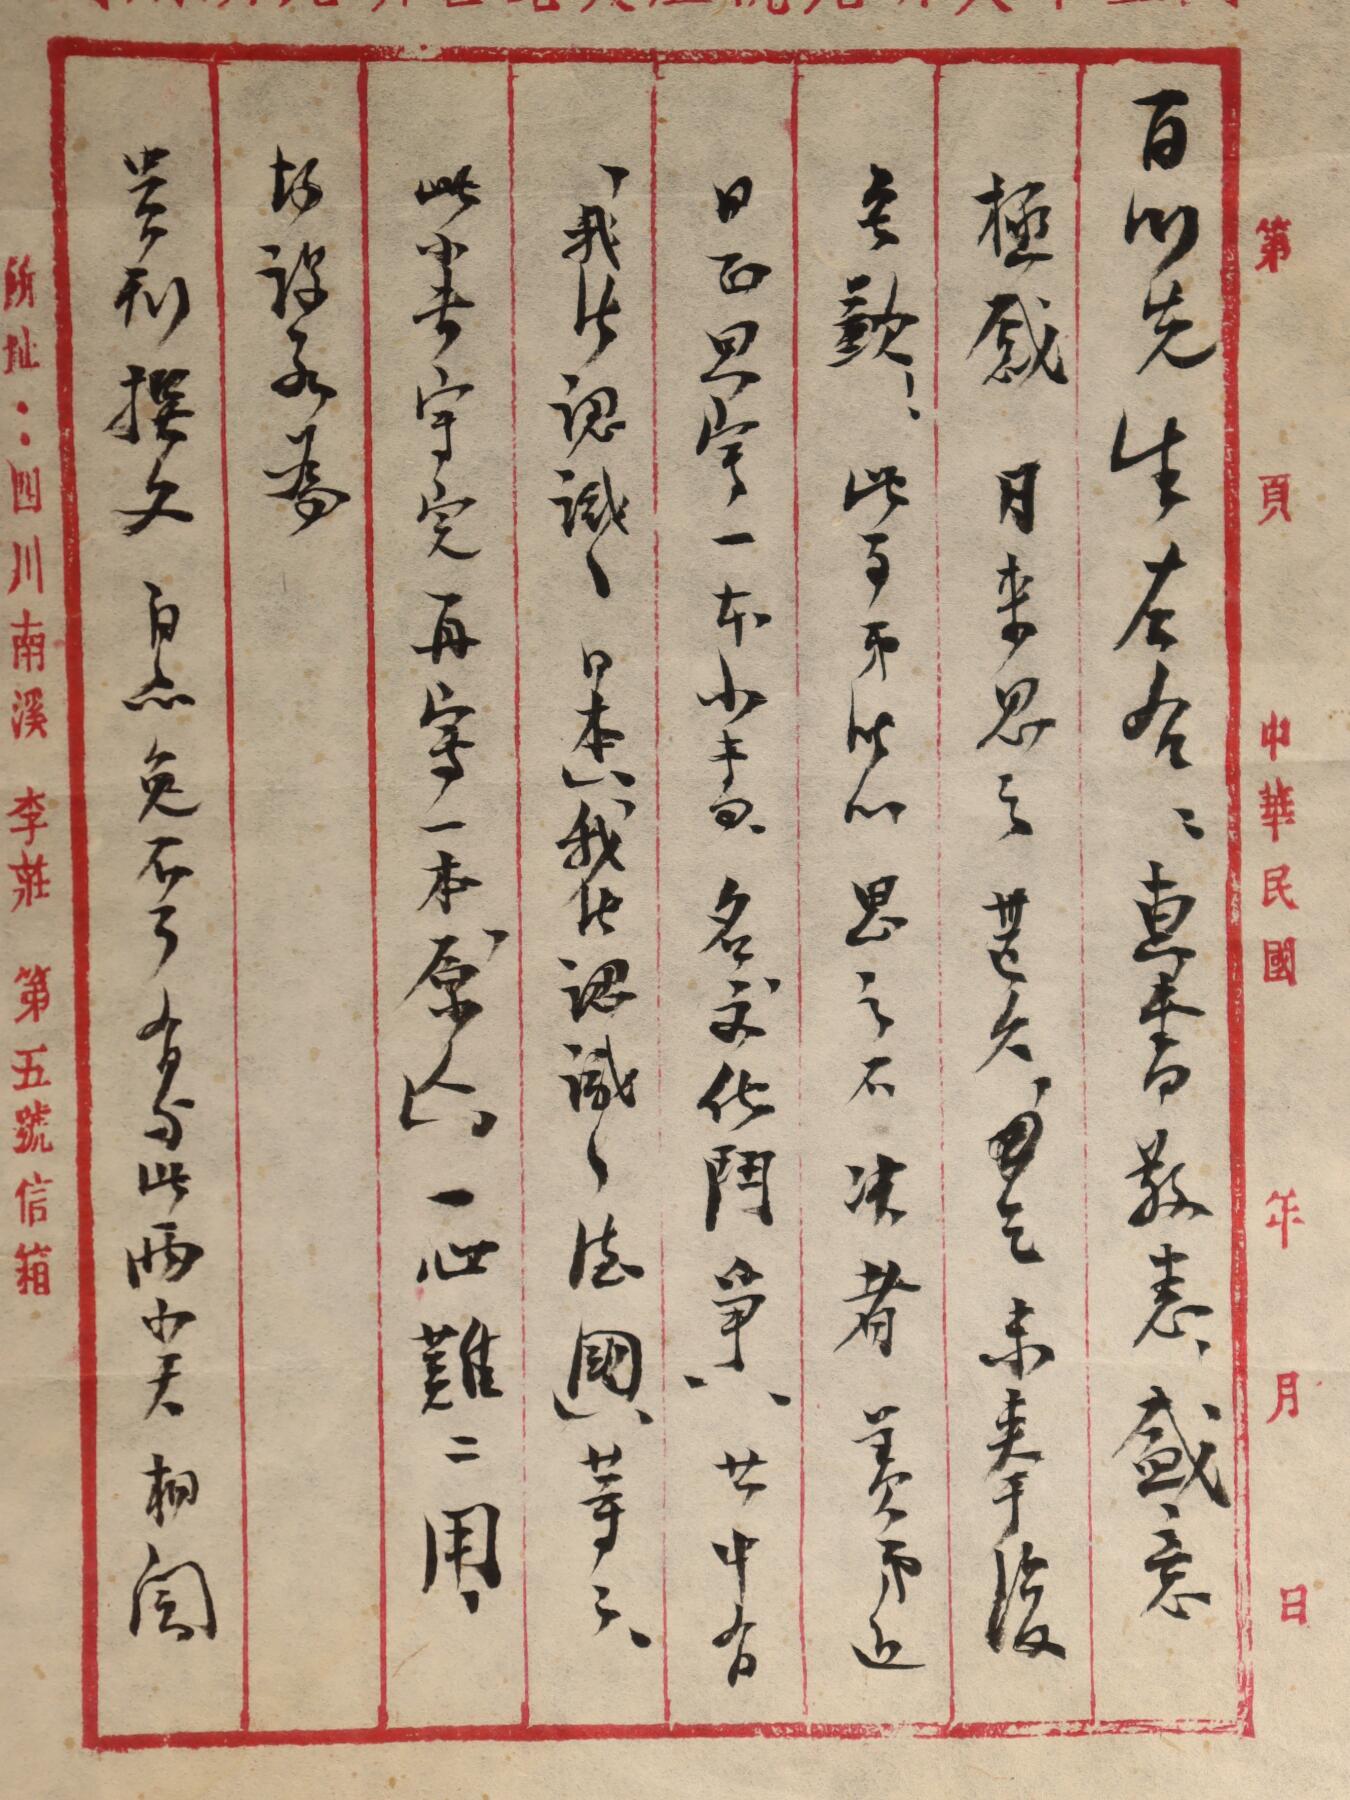 第 頁 中華民國 年 月 日
百川先生左右：惠書敬悉，盛意
極感 月來思之甚久，因之未來早復
至歉！此可所以思之不決者 蓋弟近
日正思寫一本小書，名文化鬥爭，其中有
「我們認識」日本，「我們認識」德國，等等，
此小書寫完再寫一本原人，一心難二用，
故設承為
貴刊撰文 自然免不了有與此兩小書相關
所址：四川南溪 李莊 第五號信箱